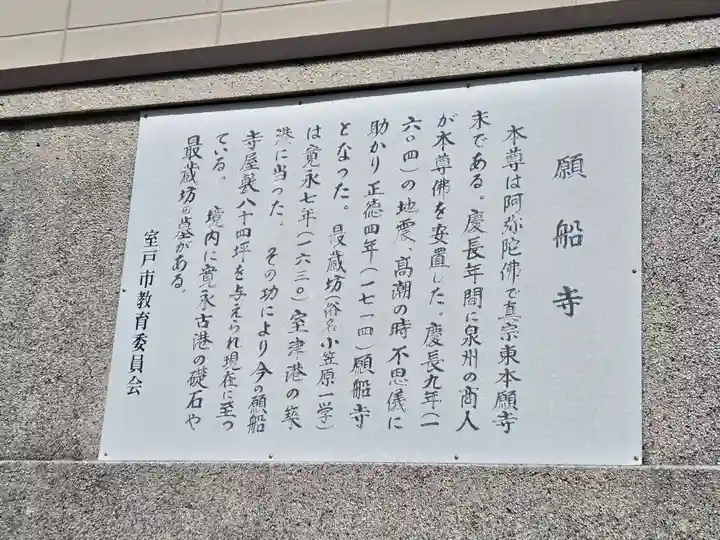 願船寺
本尊は阿弥陀佛で真宗東本願寺
末である。慶長年間に泉州の商人
が本尊佛を安置した。慶長九年(一
六〇四)の地震、高潮の時不思儀に
助かり正徳四年(一七一四)願船寺
となった。最蔵坊(俗名小笠原一学)
は寛永七年(一六三〇)室津港の築、
渫に当った。その功により今の願船
寺屋敷八十四坪を与えられ現在に至っ
ている。境内に寛永古港の礎石や
最蔵坊の墓がある。
室戸市教育委員会